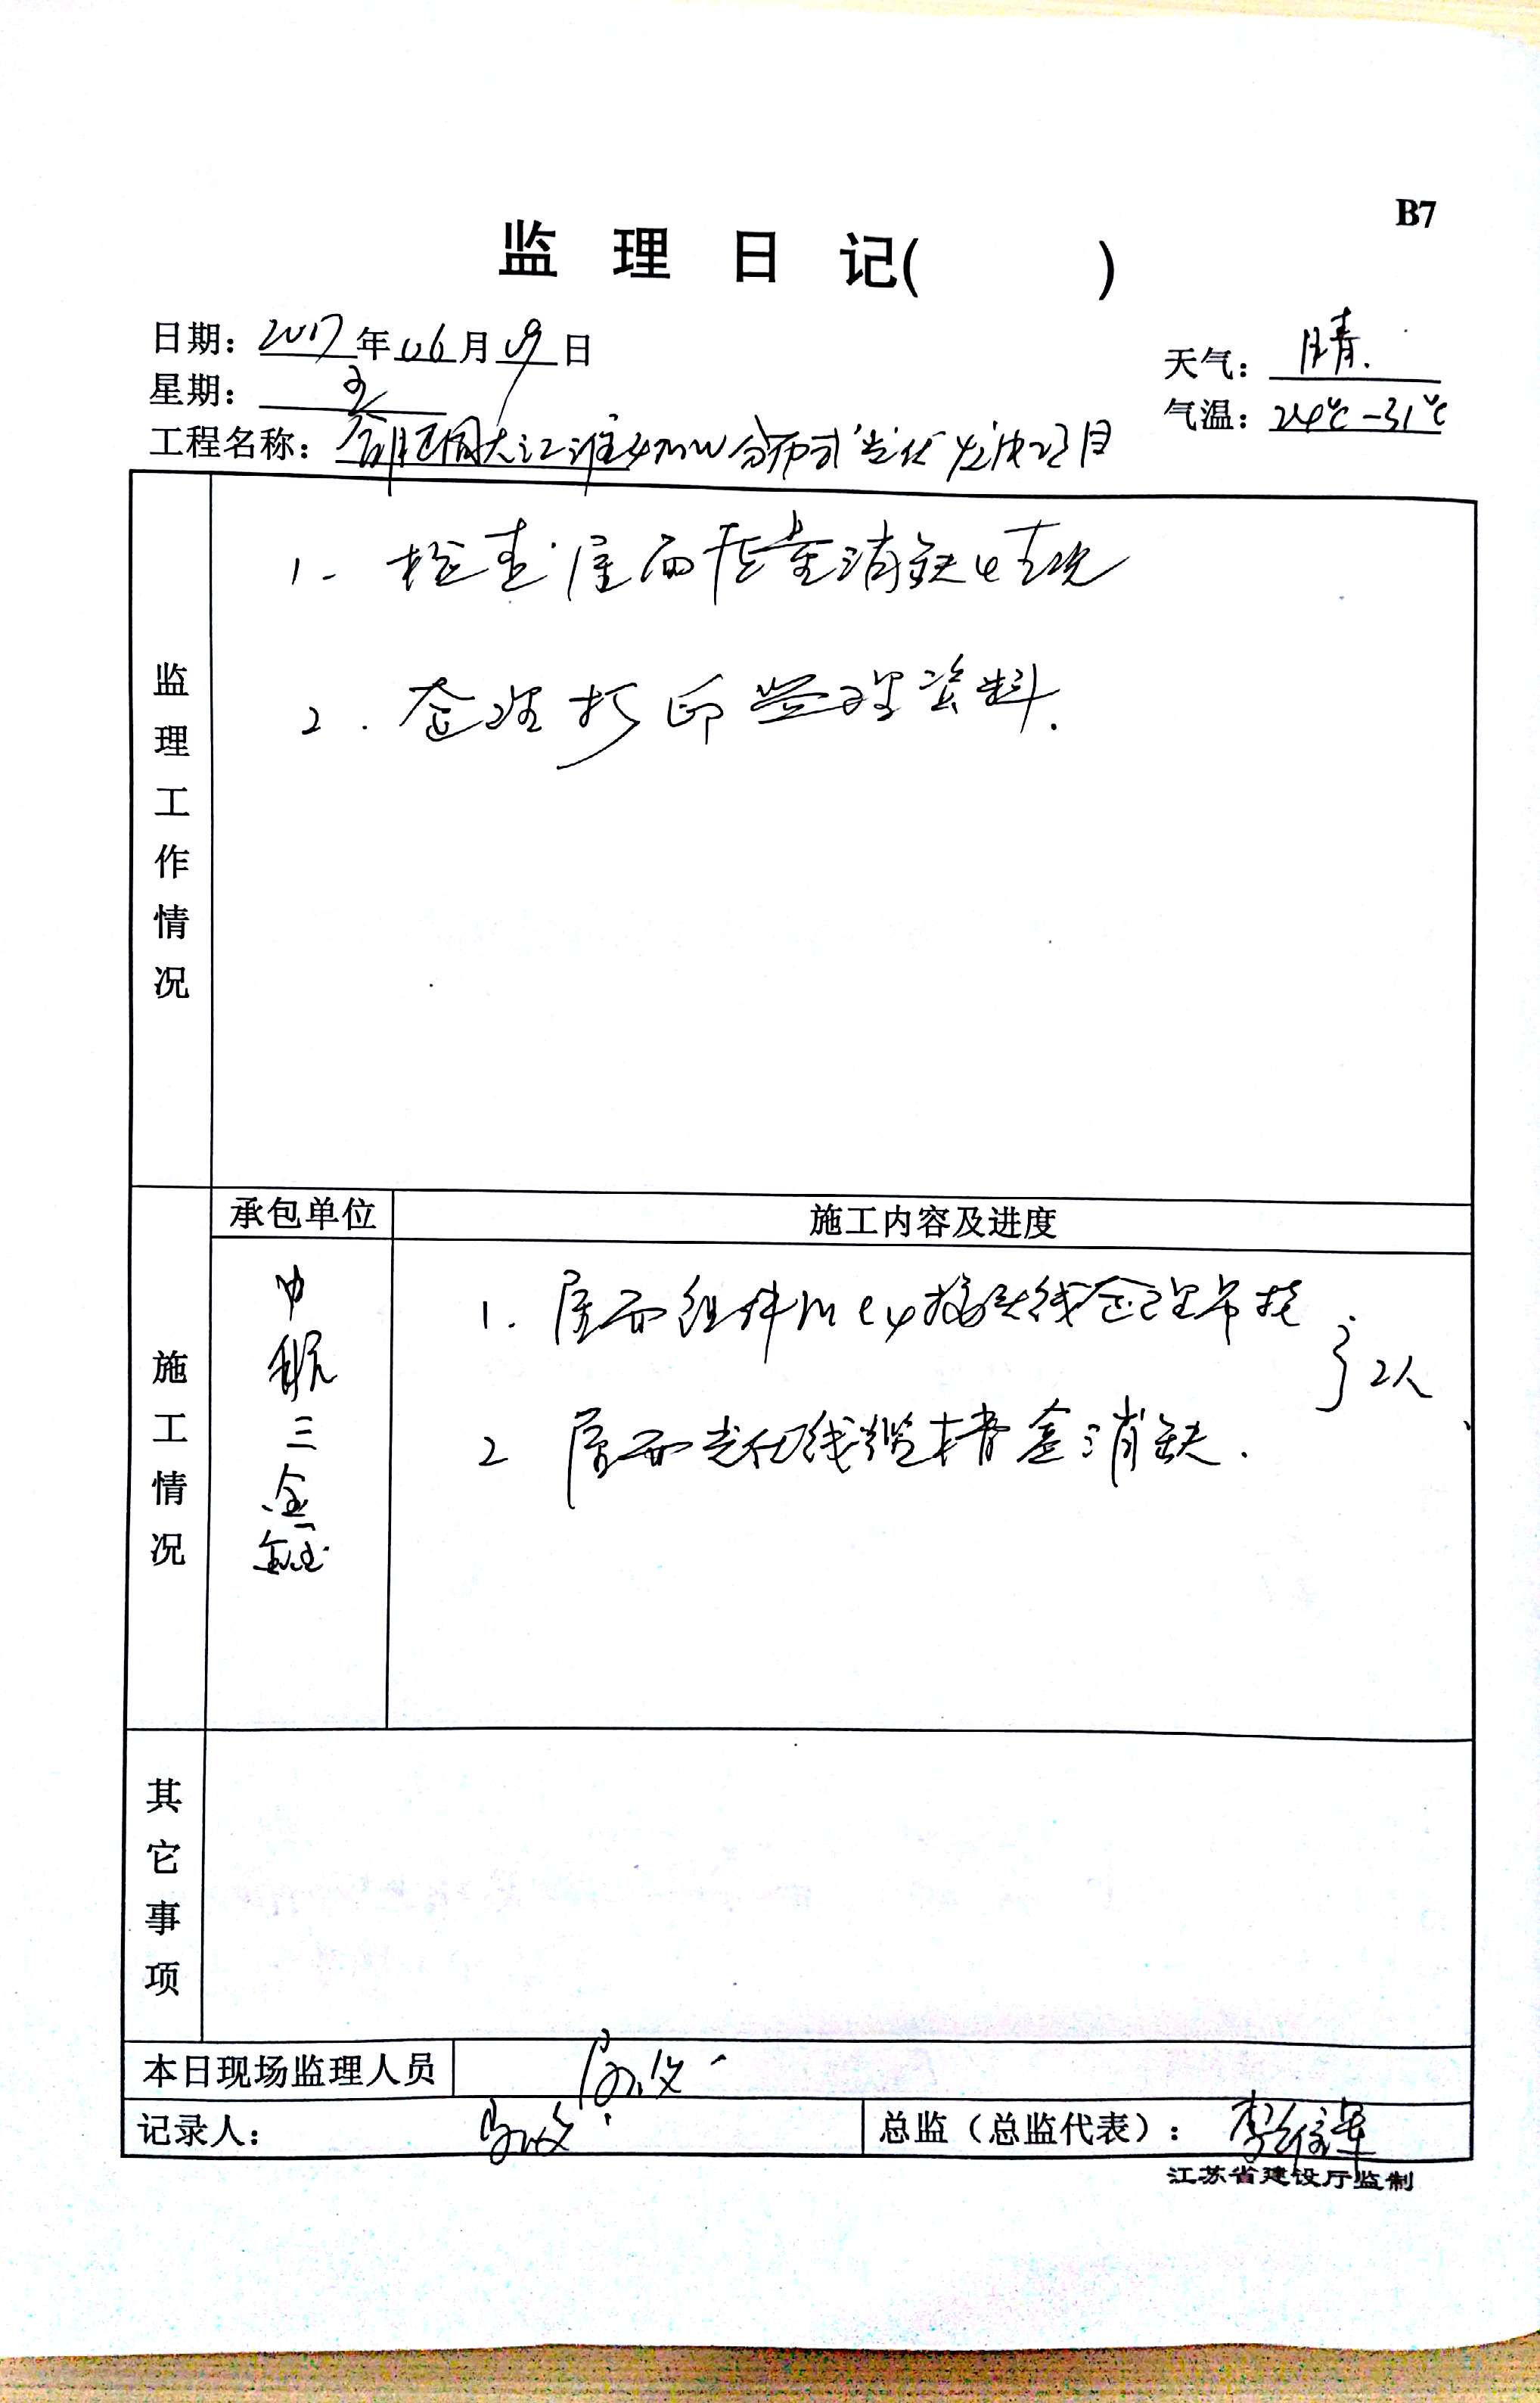 B7
监理日记(    )
日期：2017年06月09日
天气：晴.
星期：五
气温：24℃-31℃
工程名称：合肥同大江淮4MW分布式光伏发电项目
监理工作情况
1. 检查屋面质量消缺情况
2. 整理打印监理资料.
施工情况
承包单位
施工内容及进度
中航三鑫
1. 屋面组件MC4接头线整理吊扎
2人
2 屋面光伏线缆桥盒消缺.
其它事项
本日现场监理人员
记录人：
总监（总监代表）：
江苏省建设厅监制